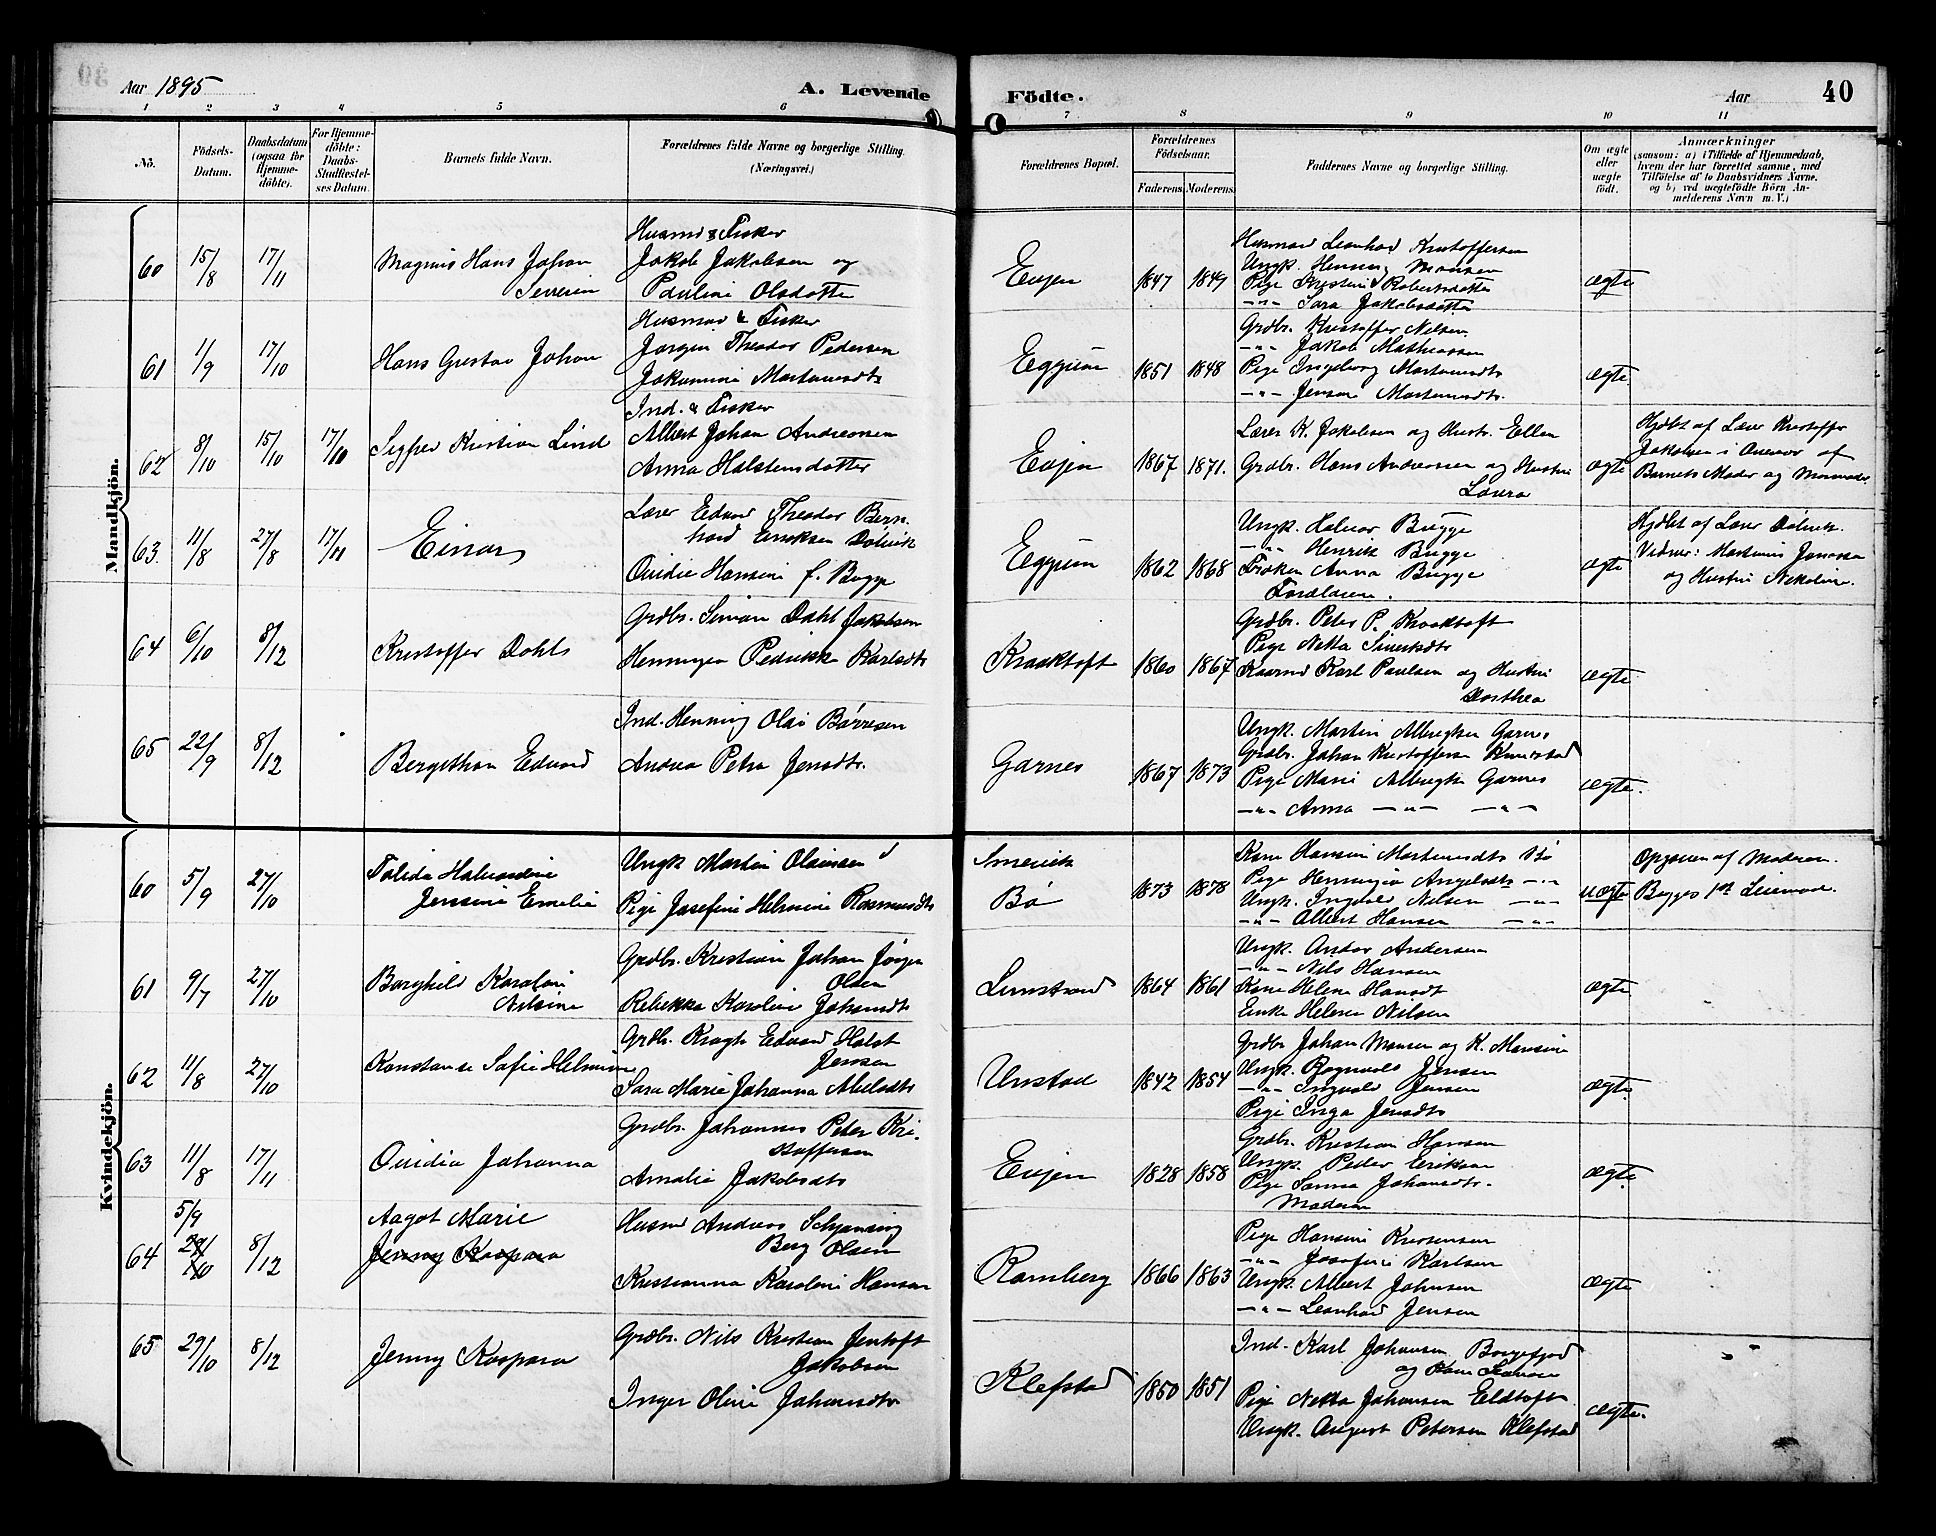 Aar 1895
A. Levende
Födte.
Aar
40
1 2 3 4 5 6 7 8 9 10 11
No.
Födsels-Datum.
Daabsdatum (ogsaa for Hjemme-döbte).
For Hjemme-döbte: Daabs-Stadfæstel-ses Datum.
Barnets fulde Navn.
Forældrenes fulde Navne og borgerlige Stilling. (Næringsvei.)
Forældrenes Bopæl.
Forældrenes Födselsaar.
Faderens Moderens
Faddernes Navne og borgerlige Stilling.
Om ægte eller uægte födt.
Anmærkninger
(saasom: a) i Tilfælde af Hjemmedaab, hvem der har forrettet samme, med Tilföielse af to Daabsvidners Navne, og b) ved uægtefödte Börn An-melderens Navn m.V.)
Mandkjön.
60 15/8 17/11
Magnus Hans Johan
Severin
Husmd & Fisker
Jakob Jakobsen og
Pauline Olsdatter
Evjen 1847 1849
Husmand Leonhard Kristoffersen
Ungk. Henning Monsen
Pige Kristine Robertsdatter
-"- Sara Jakobsdatter
ægte
61 11/9 17/10
Hans Gustav Johan
Husmd & Fisker
Jørgen Theodor Pedersen
Jakomine Martemsdtr
Eggum 1851 1848
Grdbr. Kristoffer Nilsen
-"- Jakob Mathiassen
Pige Ingeborg
-"- Jensine
ægte
62 8/10 15/10 17/10
Sigfred Kristian Lind
Ind. & Fisker
Albert Johan Andreassen
Anna Halstensdatter
Evjen 1867 1871.
Lærer K. Jakobsen og Hustr. Ellen
Grdbr. Hans Andreassen og Hustru
Laura
ægte
Hjdbt af Lærer Kristoffer
Jakobsen i Overvær af
Barnets Moder og Mormoder
63. 11/8 27/8 17/11
Einar
Lærer Edvard Theodor Bern-
hard Eriksen Dölvik
Ovidie Hansine f. Bugge
Eggum 1862 1868
Ungk. Halvor Bugge
-"- Henrik Bugge
Frøken Anna Bugge
Forældrene.
ægte
Hjdbt af Lærer Dölvik.
Vidner: Martinus Jonassen
og Hustru Nekoline.
64 6/10 8/12
Kristoffer Dahls
Grdbr. Simon Dahl Jakobsen
Henningea Pedrikke Karlsdtr
Kraaktoft 1860 1867
Grdbr. Peter P. Kraaktoft
Pige Netta Sivertsdtr
Kaarmd Karl Paulsen og Hustru
Dorthea
ægte
65 22/9 8/12
Bergithon Edvard
Ind. Henning Olai Børresen
Andrea Petra Jensdtr.
Garnes 1867 1873
Ungk. Martin Albrigtsen Garnes
Grdbr. Johan Kristoffersen Knutstad
Pige Marie Albrigts Garnes
-"- Anna -"- -"-
ægte.
Kvindekjön.
60 5/9 27/10
Talida Halvardine
Jensine Emelie
Ungk Martin Olaussen
Pige Josefine Helmine Rasmusdtr
Smervik
Bö 1873 1878
Kone Hansine Martemsdtr Bö
Pige Henningia Angelsdtr -"-
Ungk. Ingvald Nilsen -"-
-"- Albert Hansen -"-
uægte
Opgiven af Moderen.
Begges 1ste Leiermaal.
61 9/7 27/10
Borghild Karoline
Nilsine
Grdbr. Kristian Johan Jörgen
Olsen
Rebekka Karoline Johansdtr
Limstrand 1864 1861
Ungk. Andor Andersen
-"- Nils Hansen
Kone Helene Hansdt
Enke Helene Nilsen
ægte
62 11/8 27/10
Konstanse Sofie Helmine
Grdbr. Kragh Edvard Holst
Jensen
Sara Marie Johanna Abelsdtr
Unstad 1842 1854
Grdbr Johan Monsen og K. Monsine
Ungk. Rognvald Jensen
-"- Ingvald Jensen
Pige Inga Jensdtr
ægte.
63 11/8 17/11
Ovidia Johanna
Grdbr. Johannes Peter Kri-
stoffersen
Amalie Jakobsdtr
Evjen 1828 1858
Grdbr. Kristian Hansen
Ungk. Peder Eriksen
Pige Sanna Johansdtr.
Moderen
ægte.
64 5/9 29/10 8/12
Aagot Marie
Jenny Kaspara
Husmd Andreas Schjønning
Berg Olsen
Kristianna Karoline Hansen
Ramberg 1866 1863
Pige Hansine Kristensen
-"- Josefine Karlsen
Ungk. Albert Johnsen
-"- Leonhard Jensen
ægte
65 29/10 8/12
Jenny Kaspara
Grdbr. Nils Kristian Jentoft
Jakobsen
Inger Oline Johansdtr
Klefstad 1850 1851
Ind. Karl Johansen Borgefjord
og Kone
Pige Netta Johansen Eldtoft
Ungk. August Petersen Klefstad
ægte.